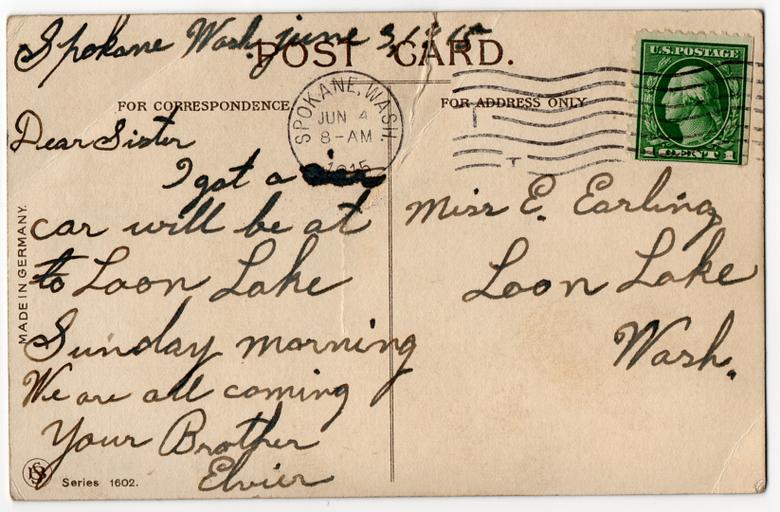 Spokane Wash, june 3, 1915
POST CARD.
FOR CORRESPONDENCE.
FOR ADDRESS ONLY
SPOKANE, WASH.
JUN 4
8-AM
1915
U.S. POSTAGE
1 CENT 1
Dear Sister
I got a
car will be at
to Loon Lake
Sunday morning
We are all coming
Your Brother
Elvier
Miss E. Earling
Loon Lake
Wash.
MADE IN GERMANY.
Series 1602.